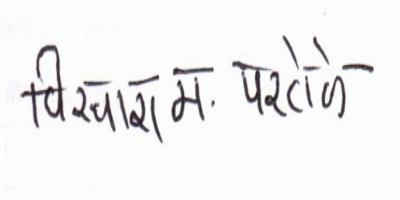 विश्वास म. परटोले